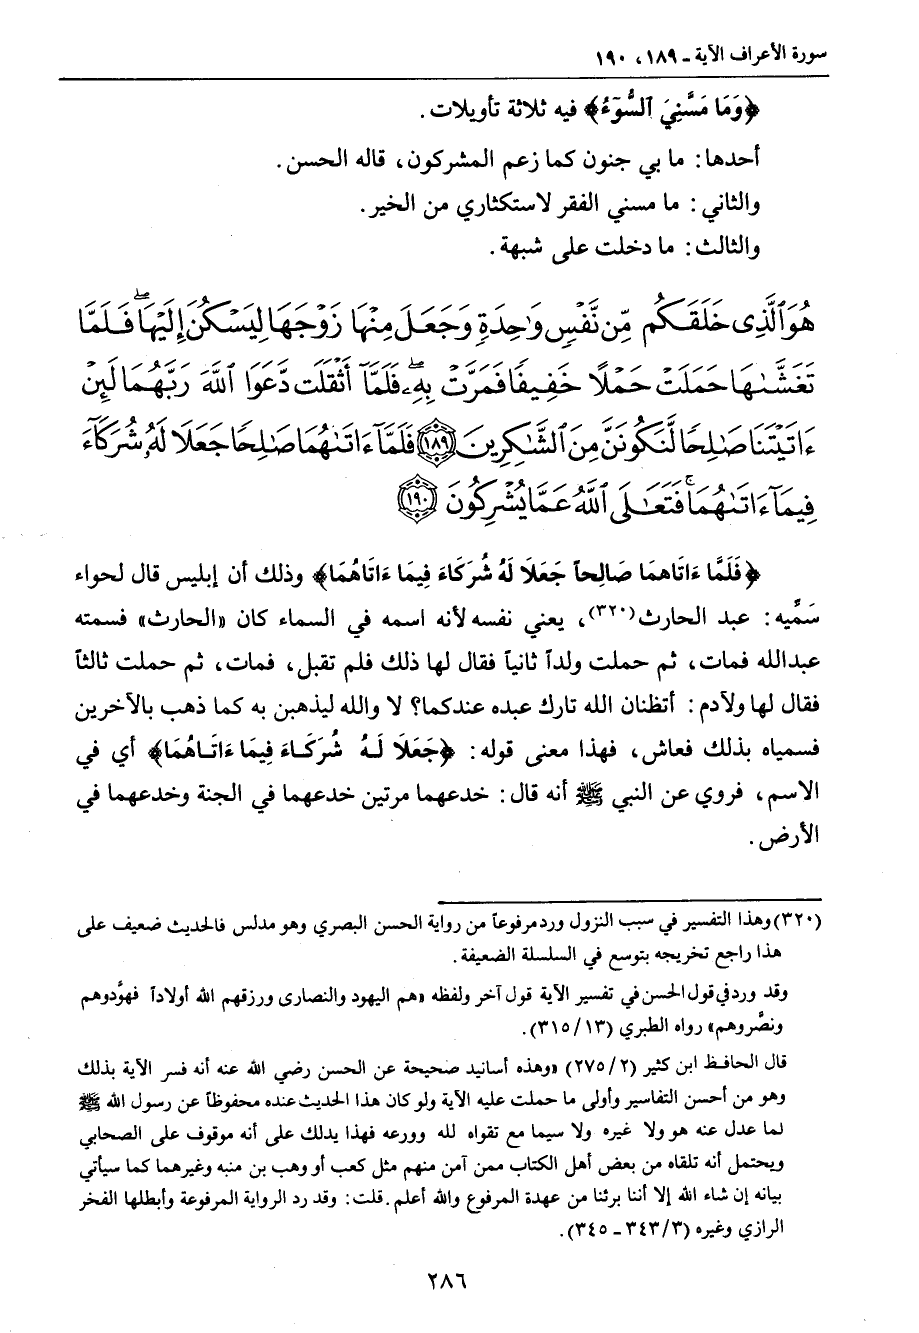 سورة الأعراف الآية ـ ١٨٩، ١٩٠
﴿وَمَا مَسَّنِيَ ٱلسُّوٓءُ﴾ فيه ثلاثة تأويلات.
أحدها: ما بي جنون كما زعم المشركون، قاله الحسن.
والثاني: ما مسني الفقر لاستكثاري من الخير.
والثالث: ما دخلت على شبهة.
هُوَ ٱلَّذِى خَلَقَكُم مِّن نَّفْسٍ وَٰحِدَةٍ وَجَعَلَ مِنْهَا زَوْجَهَا لِيَسْكُنَ إِلَيْهَا ۖ فَلَمَّا
تَغَشَّىٰهَا حَمَلَتْ حَمْلًا خَفِيفًا فَمَرَّتْ بِهِۦ ۖ فَلَمَّآ أَثْقَلَت دَّعَوَا ٱللَّهَ رَبَّهُمَا لَئِنْ
ءَاتَيْتَنَا صَٰلِحًا لَّنَكُونَنَّ مِنَ ٱلشَّٰكِرِينَ ١٨٩ فَلَمَّآ ءَاتَىٰهُمَا صَٰلِحًا جَعَلَا لَهُۥ شُرَكَآءَ
فِيمَآ ءَاتَىٰهُمَا ۚ فَتَعَٰلَى ٱللَّهُ عَمَّا يُشْرِكُونَ ١٩٠
﴿فَلَمَّا ءَاتَاهمَا صَالِحاً جَعَلَا لَهُ شُرَكَاءَ فِيمَا ءَاتَاهُمَا﴾ وذلك أن إبليس قال لحواء
سَمِّيه: عبد الحارث(٣٢٠)، يعني نفسه لأنه اسمه في السماء كان «الحارث» فسمته
عبدالله فمات، ثم حملت ولداً ثانياً فقال لها ذلك فلم تقبل، فمات، ثم حملت ثالثاً
فقال لها ولآدم: أتظنان الله تارك عبده عندكما؟ لا والله ليذهبن به كما ذهب بالآخرين
فسمياه بذلك فعاش، فهذا معنى قوله: ﴿جَعَلَا لَهُ شُرَكَاءَ فِيمَا ءَاتَاهُمَا﴾ أي في
الاسم، فروي عن النبي ﷺ أنه قال: خدعهما مرتين خدعهما في الجنة وخدعهما في
الأرض.
(٣٢٠) وهذا التفسير في سبب النزول ورد مرفوعاً من رواية الحسن البصري وهو مدلس فالحديث ضعيف على
هذا راجع تخريجه بتوسع في السلسلة الضعيفة.
وقد ورد في قول الحسن في تفسير الآية قول آخر ولفظه «هم اليهود والنصارى ورزقهم الله أولاداً فهوَّدوهم
ونصَّروهم» رواه الطبري (٣١٥/١٣).
قال الحافظ ابن كثير (٢٧٥/٢) «وهذه أسانيد صحيحة عن الحسن رضي الله عنه أنه فسر الآية بذلك
وهو من أحسن التفاسير وأولى ما حملت عليه الآية ولو كان هذا الحديث عنده محفوظاً عن رسول الله ﷺ
لما عدل عنه هو ولا غيره ولا سيما مع تقواه لله وورعه فهذا يدلك على أنه موقوف على الصحابي
ويحتمل أنه تلقاه من بعض أهل الكتاب ممن آمن منهم مثل كعب أو وهب بن منبه وغيرهما كما سيأتي
بيانه إن شاء الله إلا أننا برئنا من عهدة المرفوع والله أعلم. قلت: وقد رد الرواية المرفوعة وأبطلها الفخر
الرازي وغيره (٣٤٣/٣ ـ ٣٤٥).
٢٨٦